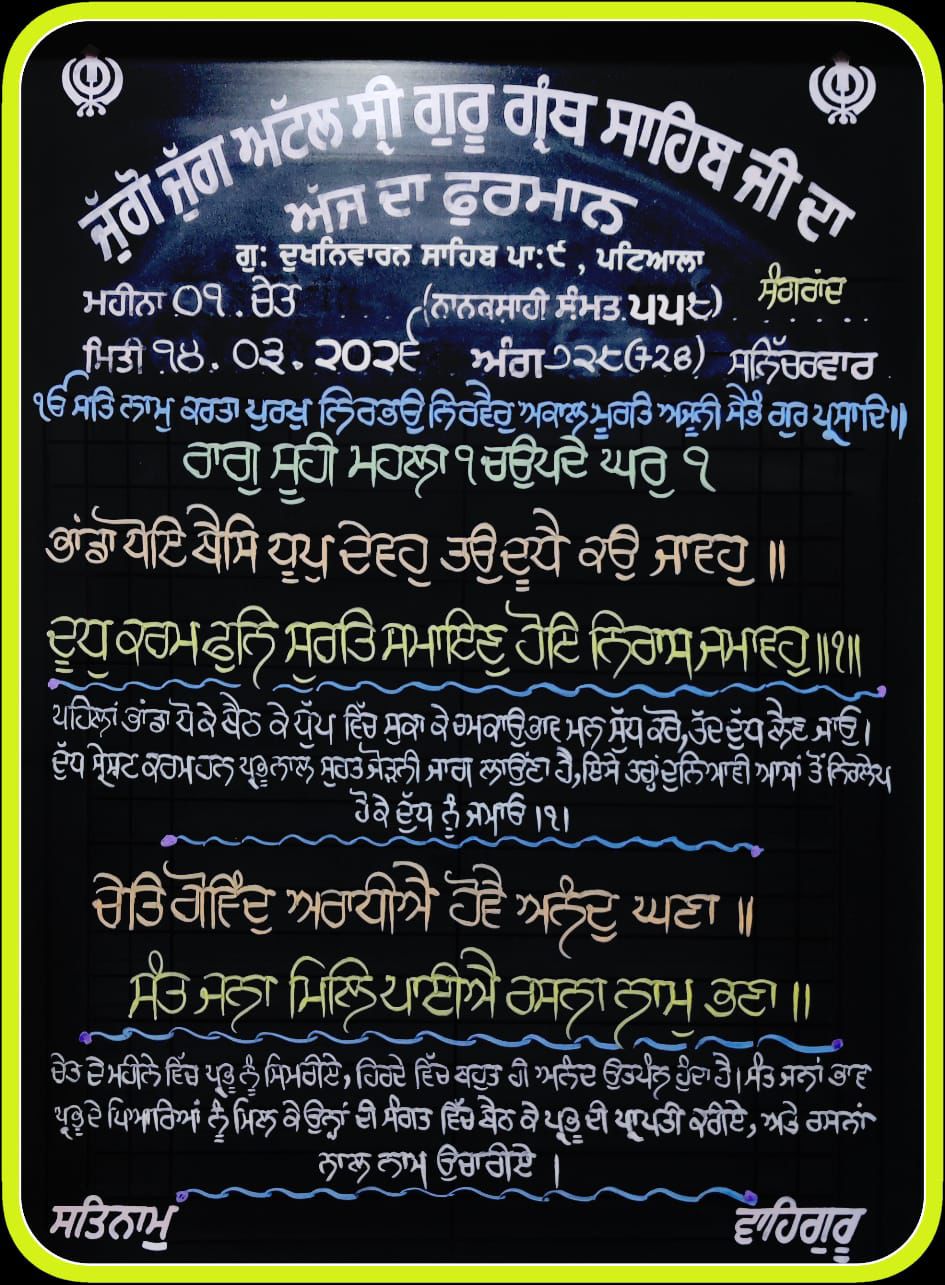 ਜੁੱਗੋ ਜੁੱਗ ਅਟੱਲ ਸ੍ਰੀ ਗੁਰੂ ਗ੍ਰੰਥ ਸਾਹਿਬ ਜੀ ਦਾ
ਅੱਜ ਦਾ ਫੁਰਮਾਨ
ਗੁ: ਦੁਖਨਿਵਾਰਨ ਸਾਹਿਬ ਪਾ:੯ , ਪਟਿਆਲਾ
ਮਹੀਨਾ ੦੧. ਚੇਤ (ਨਾਨਕਸ਼ਾਹੀ ਸੰਮਤ ੫੫੮) ਸੰਗਰਾਂਦ
ਮਿਤੀ ੧੪. ੦੩. ੨੦੨੬ ਅੰਗ ੭੨੮(728) ਸਨਿੱਚਰਵਾਰ
ੴ ਸਤਿ ਨਾਮੁ ਕਰਤਾ ਪੁਰਖੁ ਨਿਰਭਉ ਨਿਰਵੈਰੁ ਅਕਾਲ ਮੂਰਤਿ ਅਜੂਨੀ ਸੈਭੰ ਗੁਰ ਪ੍ਰਸਾਦਿ॥
ਰਾਗੁ ਸੂਹੀ ਮਹਲਾ ੧ ਚਉਪਦੇ ਘਰੁ ੧
ਭਾਂਡਾ ਧੋਇ ਬੈਸਿ ਧੂਪੁ ਦੇਵਹੁ ਤਉ ਦੂਧੈ ਕਉ ਜਾਵਹੁ ॥
ਦੂਧੁ ਕਰਮ ਫੁਨਿ ਸੁਰਤਿ ਸਮਾਇਣੁ ਹੋਇ ਨਿਰਾਸ ਜਮਾਵਹੁ ॥੧॥
ਪਹਿਲਾਂ ਭਾਂਡਾ ਧੋ ਕੇ ਬੈਠ ਕੇ ਧੁੱਪ ਵਿੱਚ ਸੁਕਾ ਕੇ ਚਮਕਾਉ ਭਾਵ ਮਨ ਸ਼ੁੱਧ ਕਰੋ, ਤੱਦ ਦੁੱਧ ਲੈਣ ਜਾਓ।
ਦੁੱਧ ਸ੍ਰੇਸ਼ਟ ਕਰਮ ਹਨ ਪ੍ਰਭੂ ਨਾਲ ਸੁਰਤ ਜੋੜਨੀ ਜਾਗ ਲਾਉਣਾ ਹੈ, ਇਸੇ ਤਰ੍ਹਾਂ ਦੁਨਿਆਵੀ ਆਸਾਂ ਤੋਂ ਨਿਰਲੇਪ
ਹੋ ਕੇ ਦੁੱਧ ਨੂੰ ਜਮਾਓ ।੧।
ਚੇਤਿ ਗੋਵਿੰਦੁ ਅਰਾਧੀਐ ਹੋਵੈ ਅਨੰਦੁ ਘਣਾ ॥
ਸੰਤ ਜਨਾ ਮਿਲਿ ਪਾਈਐ ਰਸਨਾ ਨਾਮੁ ਭਣਾ ॥
ਚੇਤ ਦੇ ਮਹੀਨੇ ਵਿੱਚ ਪ੍ਰਭੂ ਨੂੰ ਸਿਮਰੀਏ, ਹਿਰਦੇ ਵਿੱਚ ਬਹੁਤ ਹੀ ਅਨੰਦ ਉਤਪੰਨ ਹੁੰਦਾ ਹੈ। ਸੰਤ ਜਨਾਂ ਭਾਵ
ਪ੍ਰਭੂ ਦੇ ਪਿਆਰਿਆਂ ਨੂੰ ਮਿਲ ਕੇ ਉਨ੍ਹਾਂ ਦੀ ਸੰਗਤ ਵਿੱਚ ਬੈਠ ਕੇ ਪ੍ਰਭੂ ਦੀ ਪ੍ਰਾਪਤੀ ਕਰੀਏ, ਅਤੇ ਰਸਨਾਂ
ਨਾਲ ਨਾਮ ਉਚਾਰੀਏ ।
ਸਤਿਨਾਮੁ ਵਾਹਿਗੁਰੂ